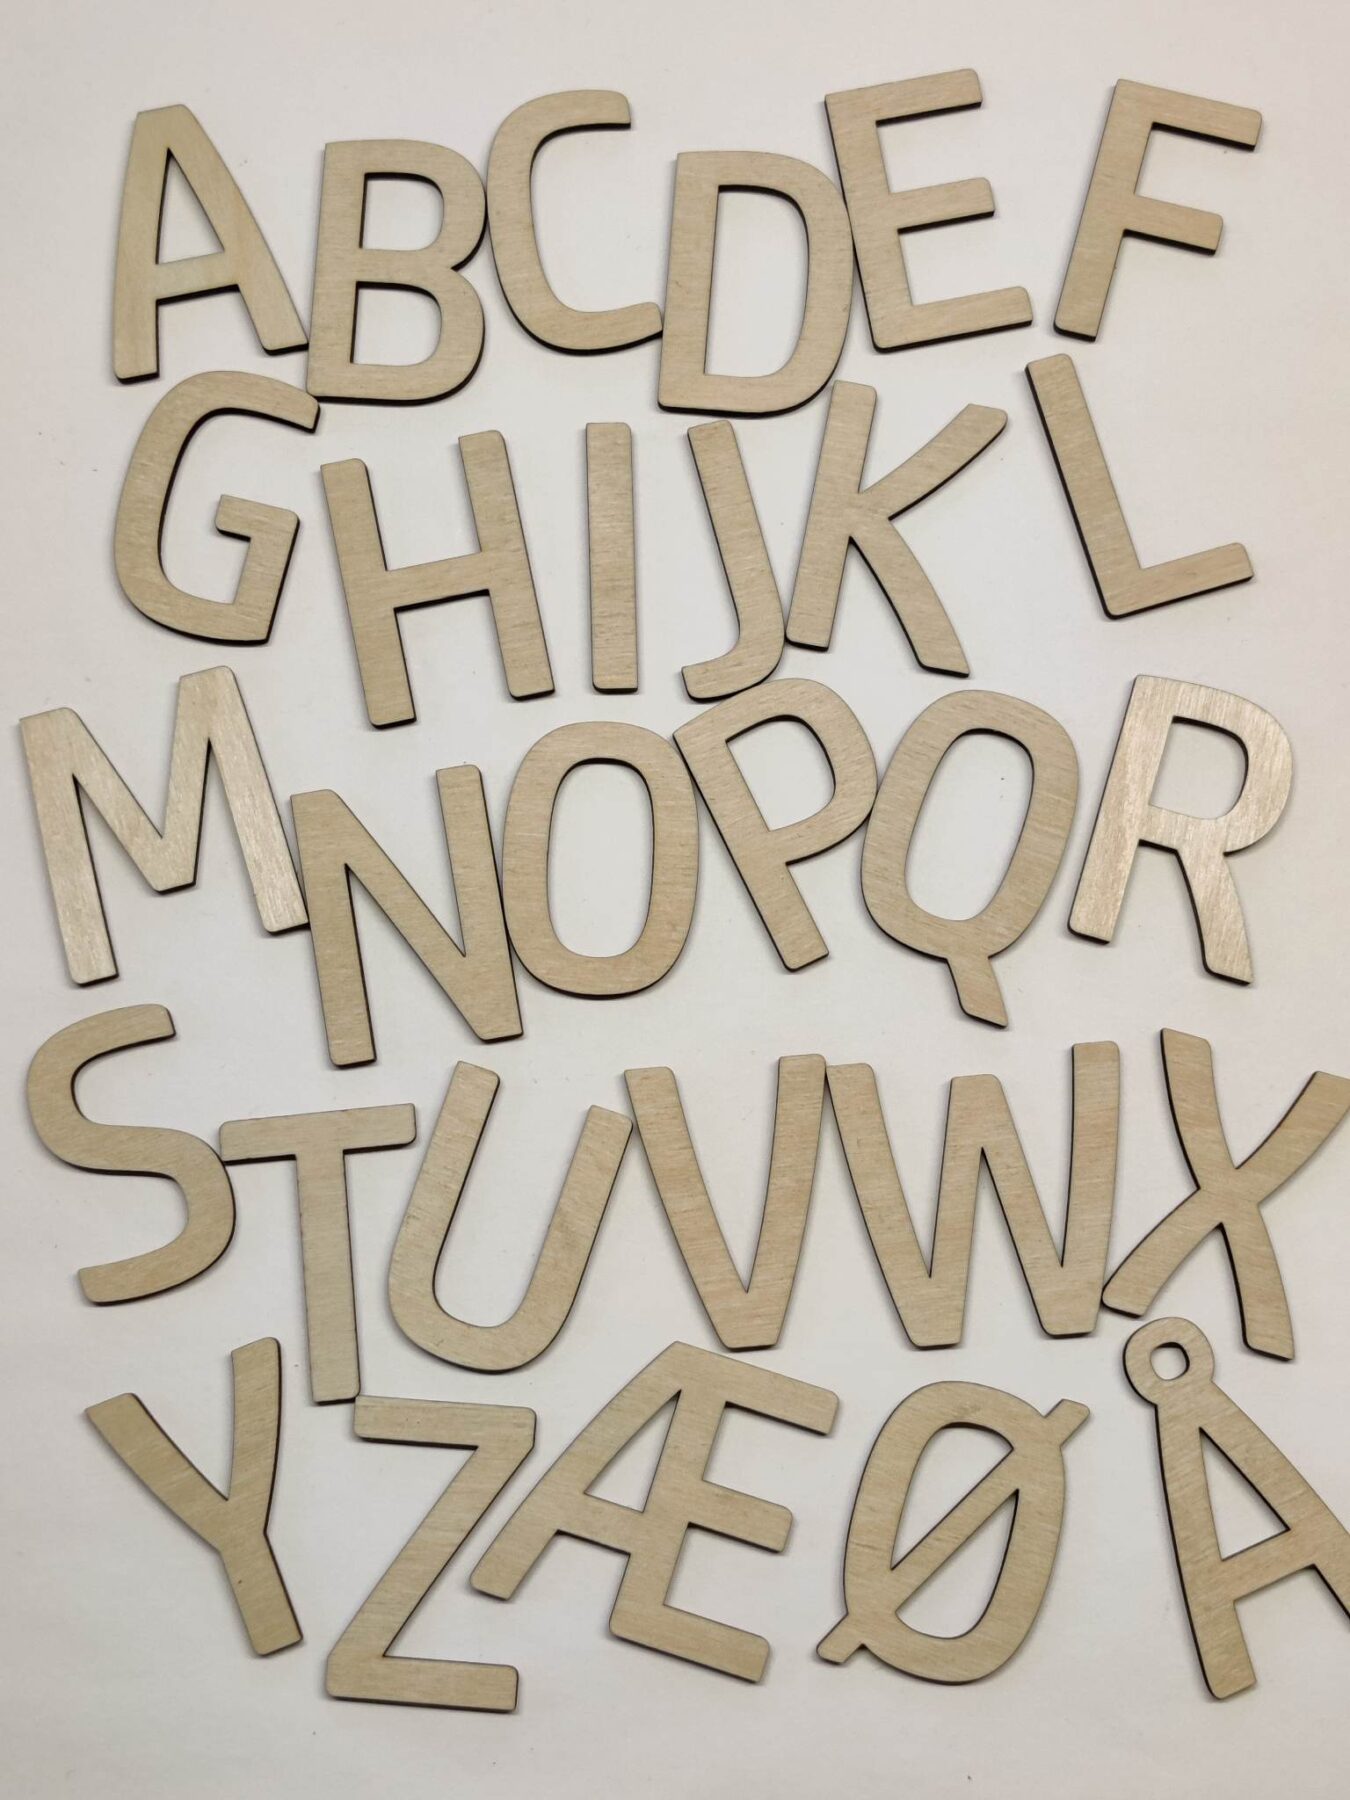 ABCDEF
GHIJKL
MNOPQR
STUVWX
YZÆØÅ